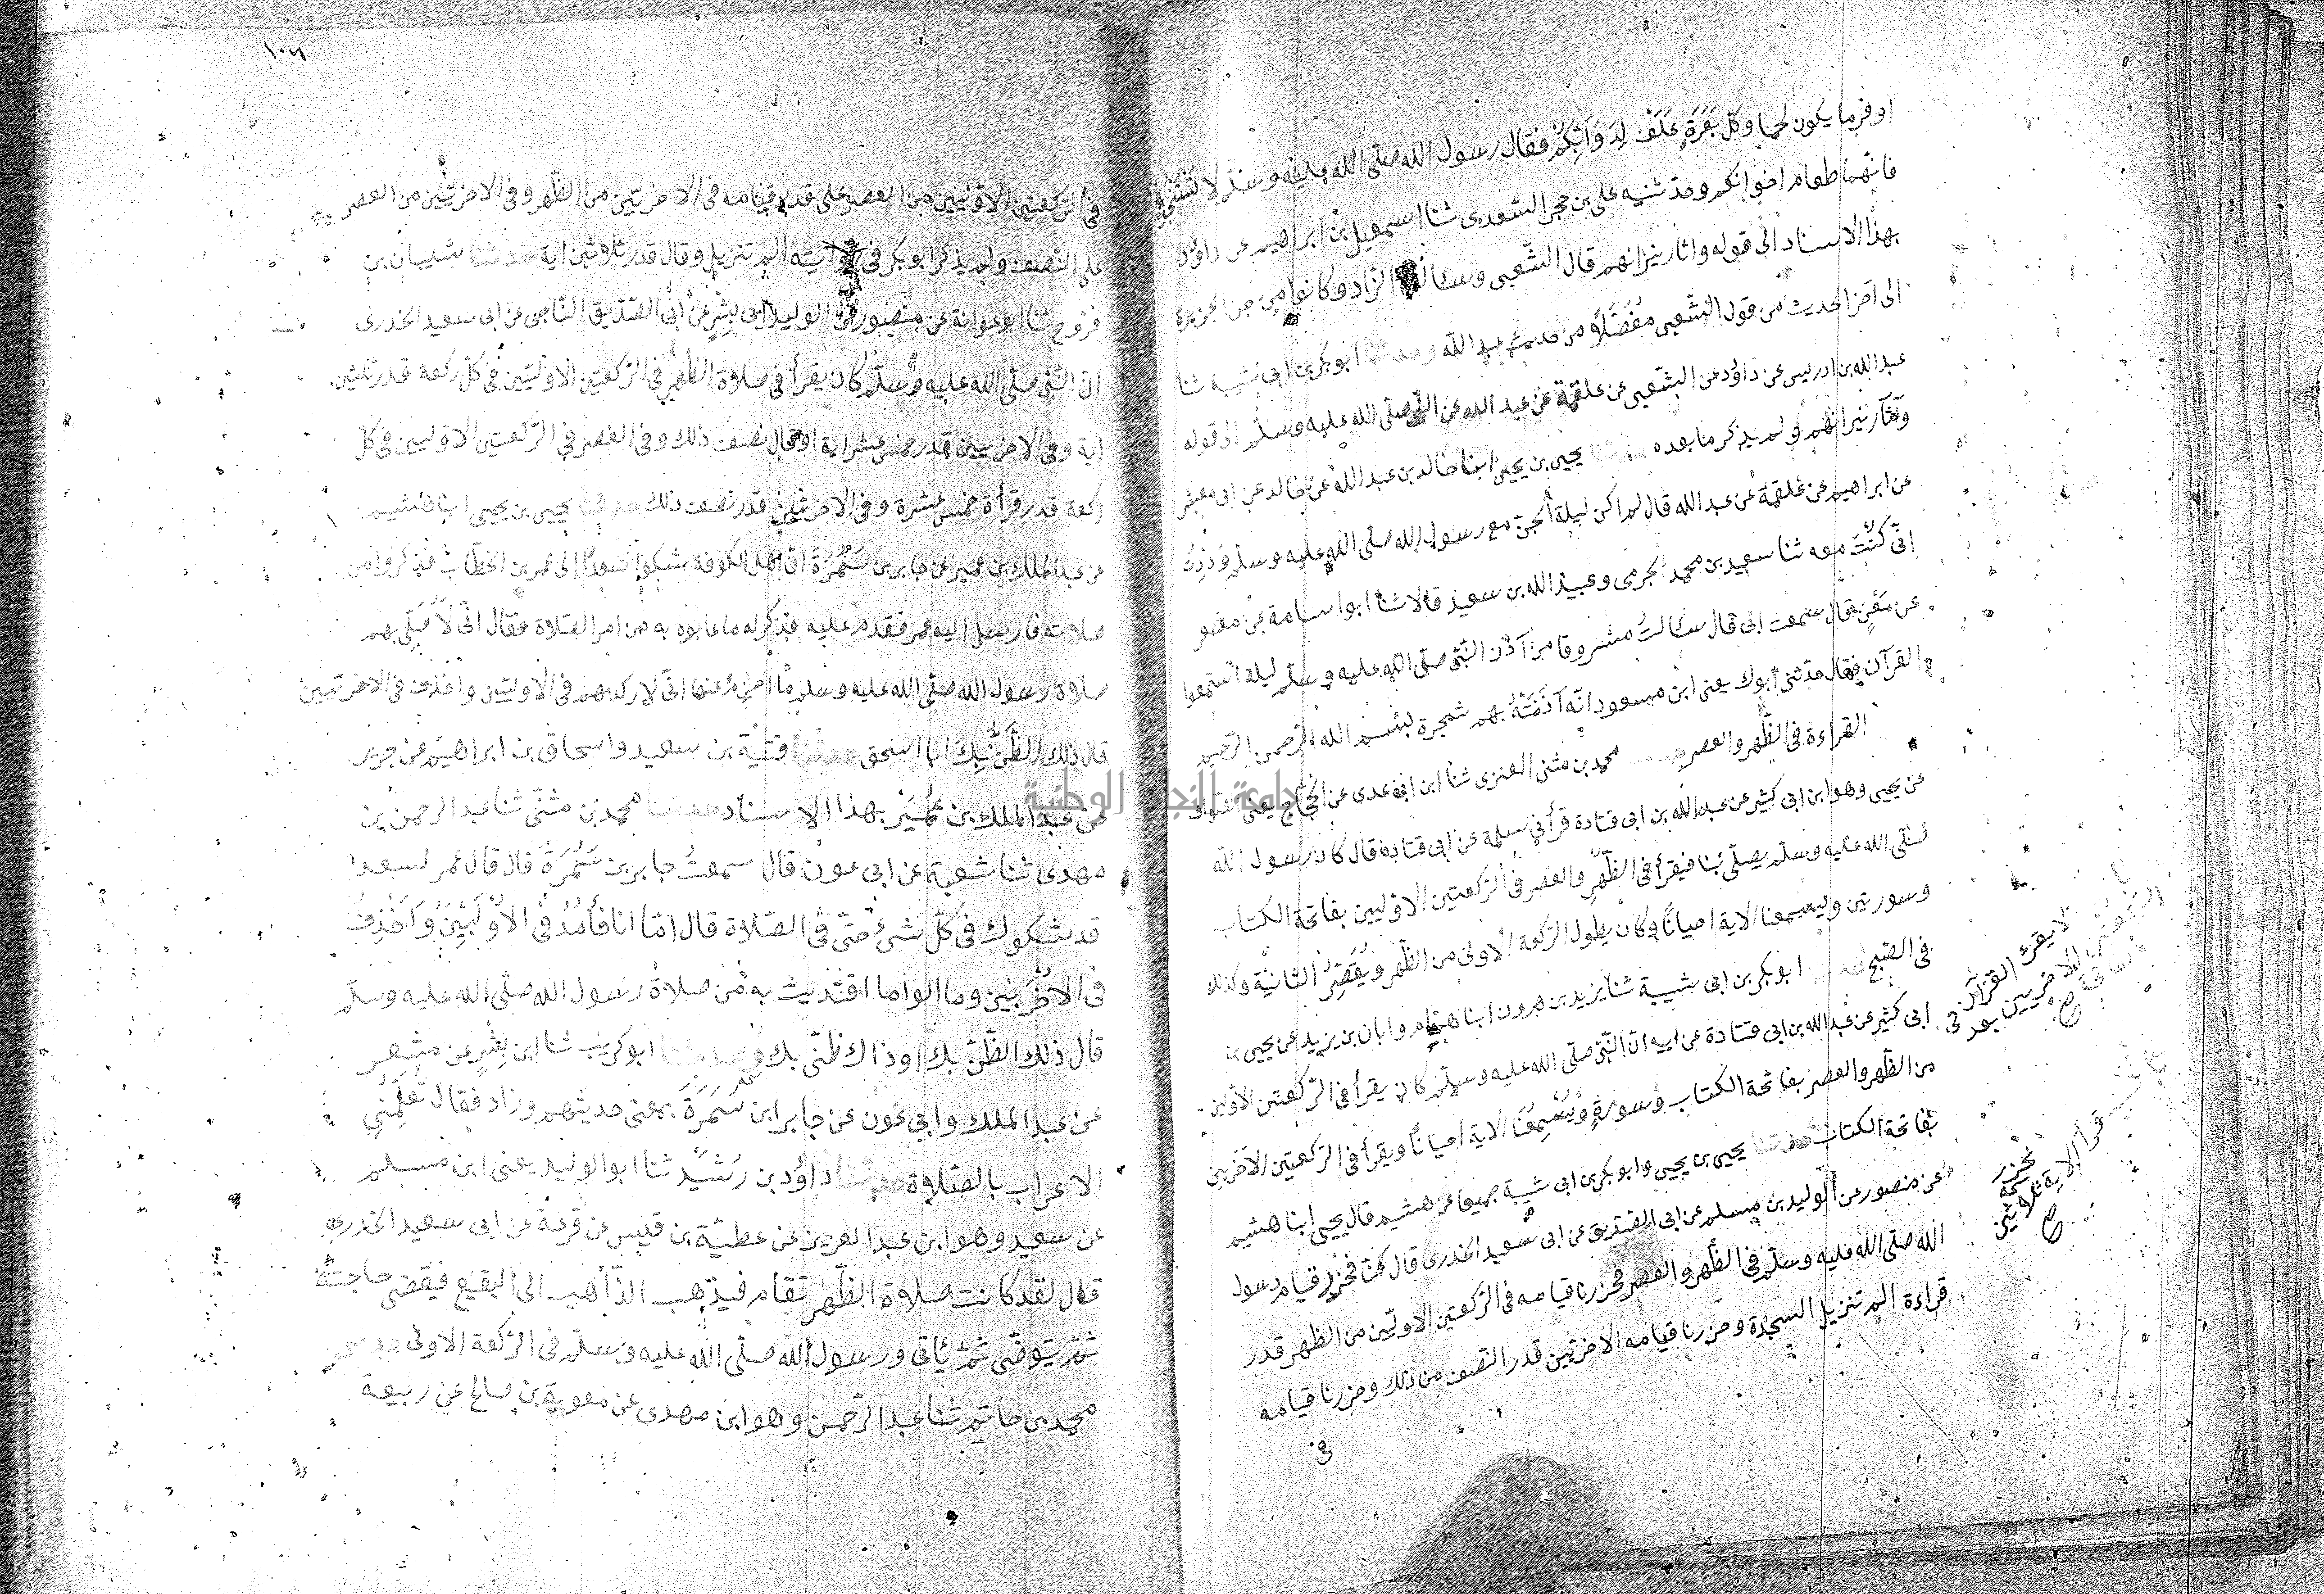 اوفر ما يكون لحما وكل بَعَرَةٍ عَلَفٌ لِدَوَابِّكُمْ فقال رسول الله صلّى الله عليه وسلّم لا تستنجوا
فانهما طعام اخوانكم وحدثنيه على بن حجر السّعدى ثنا اسمعيل بن ابراهيم عن داوٗد
بهذا الاسناد الى قوله واثار نيرانهم قال الشّعبى وسالوه الزاد وكانوا من جن الجزيرة
الى اخر الحديث من قول الشّعبى مُفَصَّلًا من حديث عبد الله وحدثنا ابو بكر بن ابى شيبة ثنا
عبد الله بن ادريس عن داوٗد عن الشّعبى عن علقمة عن عبد الله عن النّبى صلّى الله عليه وسلّم الى قوله
وآثار نيرانهم ولم يذكر ما بعده حدثنا يحيى بن يحيى ابنا خالد بن عبد الله عن خالد عن ابى معشر
عن ابراهيم عن علقمة عن عبد الله قال لم اكن ليلة الجنّ مع رسول الله صلّى الله عليه وسلّم وَدِدْتُ
انّى كنتُ معه ثنا سعيد بن محمد الجرمى وعبيد الله بن سعيد قالا ثنا ابو اسامة عن مسعر
عن مَعْنٍ قال سمعت ابى قال سالتُ مسروقا من آذن النّبى صلّى الله عليه وسلّم ليلة استمعوا
القرآن فقال حدّثنى أبوك يعنى ابن مسعود انّه آذَنَتْهُ بهم شجرة بسم الله الرّحمن الرّحيم
القراءة فى الظّهر والعصر حدثنا محمد بن مثنى العنزى ثنا ابن ابى عدى عن الحجّاج يعنى الصّوّاف
عن يحيى وهو ابن ابى كثير عن عبد الله بن ابى قتادة وأبى سلمة عن ابى قتادة قال كان رسول الله
صلّى الله عليه وسلّم يصلّى بنا فيقرأ فى الظّهر والعصر فى الرّكعتين الاوّليين بفاتحة الكتاب
وسورتين ويسمعنا الاية احيانًا وكان يطول الرّكعة الاولى من الظّهر ويُقَصِّرُ الثانية وكذلك
فى الصّبح حدثنا ابو بكر بن ابى شيبة ثنا يزيد بن هرون ابنا همام وابان بن يزيد عن يحيى بن
ابى كثير عن عبد الله بن ابى قتادة عن ابيه انّ النّبّى صلّى الله عليه وسلّم كان يقرأ فى الرّكعتين الاوليين
من الظّهر والعصر بفاتحة الكتاب وسورةٍ وَيُسْمِعُنَا الاية احيانًا ويقرأ فى الرّكعتين الاخريين
بفاتحة الكتاب حدثنا يحيى بن يحيى وابو بكر بن ابى شيبة جميعا عن هشيم قال يحيى ابنا هشيم
عن منصور عن الوليد بن مسلم عن ابى الصّدّيق عن ابى سعيد الخدرى قال كنّا نحزر قيام رسول
الله صلّى الله عليه وسلّم فى الظّهر والعصر فحزرنا قيامه فى الرّكعتين الاوليين من الظهر قدر
قراءة الم تنزيل السجدة وحزرنا قيامه الاخريين قدر النّصف من ذلك وحزرنا قيامه
فى
لا يقرء القرآن فى
الركعتين الاخريين بعد
الفاتحة
نحزر
نسخة
قرأ الاية ثلاثين
١٠٦
فى الرّكعتين الاوّليين من العصر على قدر قيامه فى الاخريّين من الظّهر وفى الاخريّين من العصر
على النّصف ولم يذكر ابو بكر فى روايته الم تنزيل وقال قدر ثلاثين اية حدثنا شيبان بن
فرّوخ ثنا ابو عوانة عن منصور عن الوليد ابى بِشْرٍ عن أبى الصّدّيق النّاجى عن ابى سعيد الخدرى
انّ النّبى صلّى الله عليه وسلّم كان يقرأ فى صلاة الظّهر فى الرّكعتين الاوليّين فى كلّ ركعة قدر ثلثين
اية وفى الاخريين قدر خمس عشر اية او قال نصف ذلك وفى العصر فى الرّكعتين الاوليين فى كلّ
ركعة قدر قرأة خمس عشرة وفى الاخريّين قدر نصف ذلك حدثنا يحيى بن يحيى ابنا هُشيم
عن عبد الملك بن عمير عن جابر بن سَمُرَةَ انّ اهل الكوفة شكوا سعدًا الى عمر بن الخطّاب فذكروا من
صلاته فارسل اليه عمر فقدم عليه فذكر له ما عابوه به من امر الصّلاة فقال انّى لَاُصَلِّى بهم
صلاة رسول الله صلّى الله عليه وسلم ما اخرم عنها انّى لاركد بهم فى الاوليّين واحذف فى الاخرتيين
قال ذلك الظَّنُّ بِكَ ابا اسحق حدثنا قتيبة بن سعيد واسحاق بن ابراهيم عن جرير
عن عبد الملك بن عُمَيْر بهذا الاسناد حدثنا محمد بن مثنّى ثنا عبد الرحمن بن
مهدى ثنا شعبة عن ابى عون قال سمعتُ جابر بن سَمُرَةَ قال قال عمر لسعد
قد شكوك فى كلّ شئ حتّى فى الصّلاة قال امّا انا فأَمُدُّ فى الاُوْلَيَيْنِ وَاَحْذِفُ
فى الاُخْرَيَيْنِ وما الوا ما اقتديت به من صلاة رسول الله صلّى الله عليه وسلّم
قال ذلك الظّنّ بك او ذاك ظنّى بك وحدثنا ابو كريب ثنا ابن بِشْرٍ عن مِسْعر
عن عبد الملك وابى عون عن جابر ابن سَمُرَةَ بمعنى حديثهم وزاد فقال تُعَلِّمُنِى
الاعراب بالصّلاة حدثنا داوٗد بن رُشَيْد ثنا ابو الوليد يعنى ابن مسلم
عن سعيد وهو ابن عبد العزيز عن عطيّة بن قيس عن قزعة عن ابى سعيد الخدرى
قال لقد كانت صلاة الظّهر تقام فيذهب الذّاهب الى البقيع فيقضى حاجتهُ
ثمّ يتوضّى ثمّ يأتى ورسول الله صلّى الله عليه وسلّم فى الرّكعة الاولى حدثنى
محمد بن حاتم ثنا عبد الرّحمن وهو ابن مهدى عن معوية بن صالح عن ربيعة
جامعة النجاح الوطنية